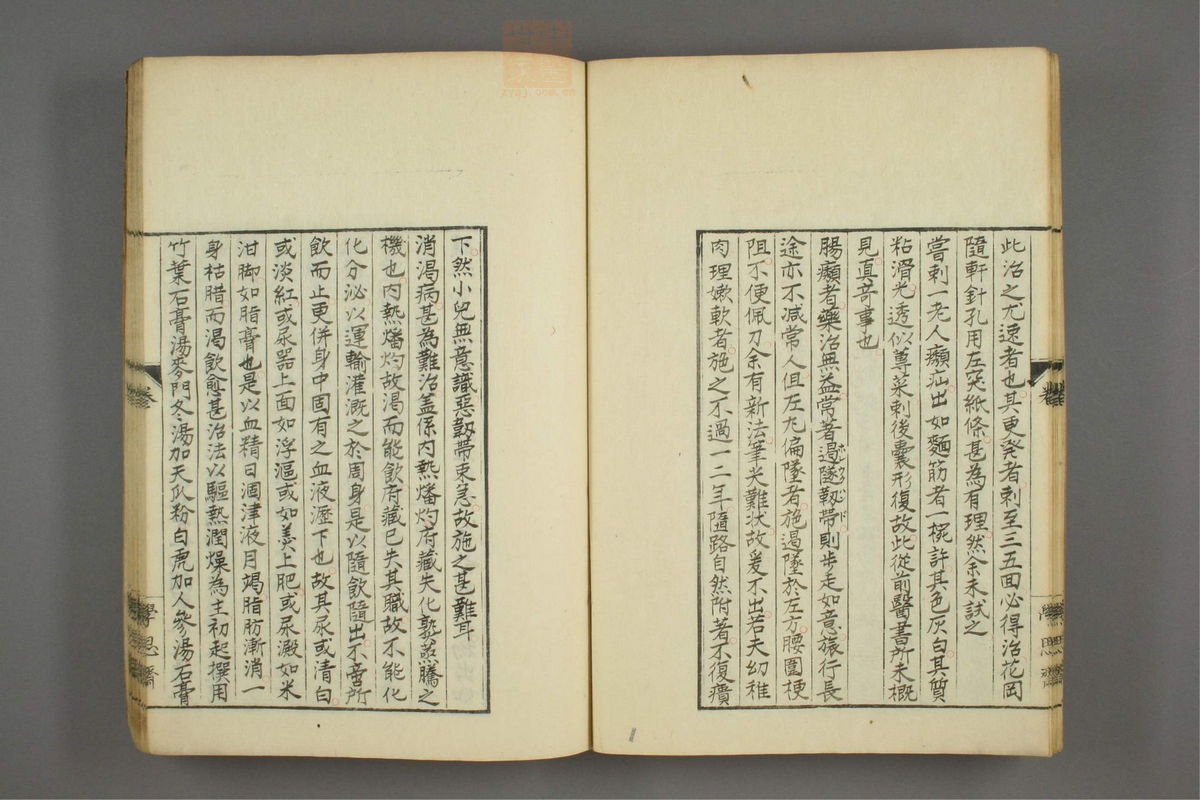 此治之尤速者也其更発者刺至三五回必得治花岡
隨軒針孔用左突紙條甚為有理然余未試之
嘗刺一老人㿗疝出如麵筋者一椀許其色灰白其質
粘滑光透似蓴菜刺後囊形復故此從前醫書所未概
見真奇事也
腸㿗者藥治無益常著遏墜靱帶則步走如意旅行長
途亦不减常人但左尢偏墜者施遏墜於左方腰圍梗
阻不便佩刀余有新法筆尖難状故爰不出若夫幼稚
肉理嫩軟者施之不過一二年隨路自然附著不復㿗
下然小兒無意識惡靱帶束急故施之甚難耳
消渴病甚為難治盖係内熱燔灼府藏失化熟蒸騰之
機也内熱燔灼故渴而能飲府藏已失其職故不能化
化分泌以運輸灌溉之於周身是以隨飲隨出不啻所
飲而止更併身中固有之血液瀝下也故其尿或清白
或淡紅或尿器上面如浮漚或如羮上肥或尿澱如米
泔脚如脂膏也是以血精日涸津液月竭脂肪漸消一
身枯腊而渴飲愈甚治法以驅熱潤燥為主初起撰用
竹葉石膏湯麥門冬湯加天瓜粉白虎加人參湯石膏
卷
學思齋
zysj.com.cn